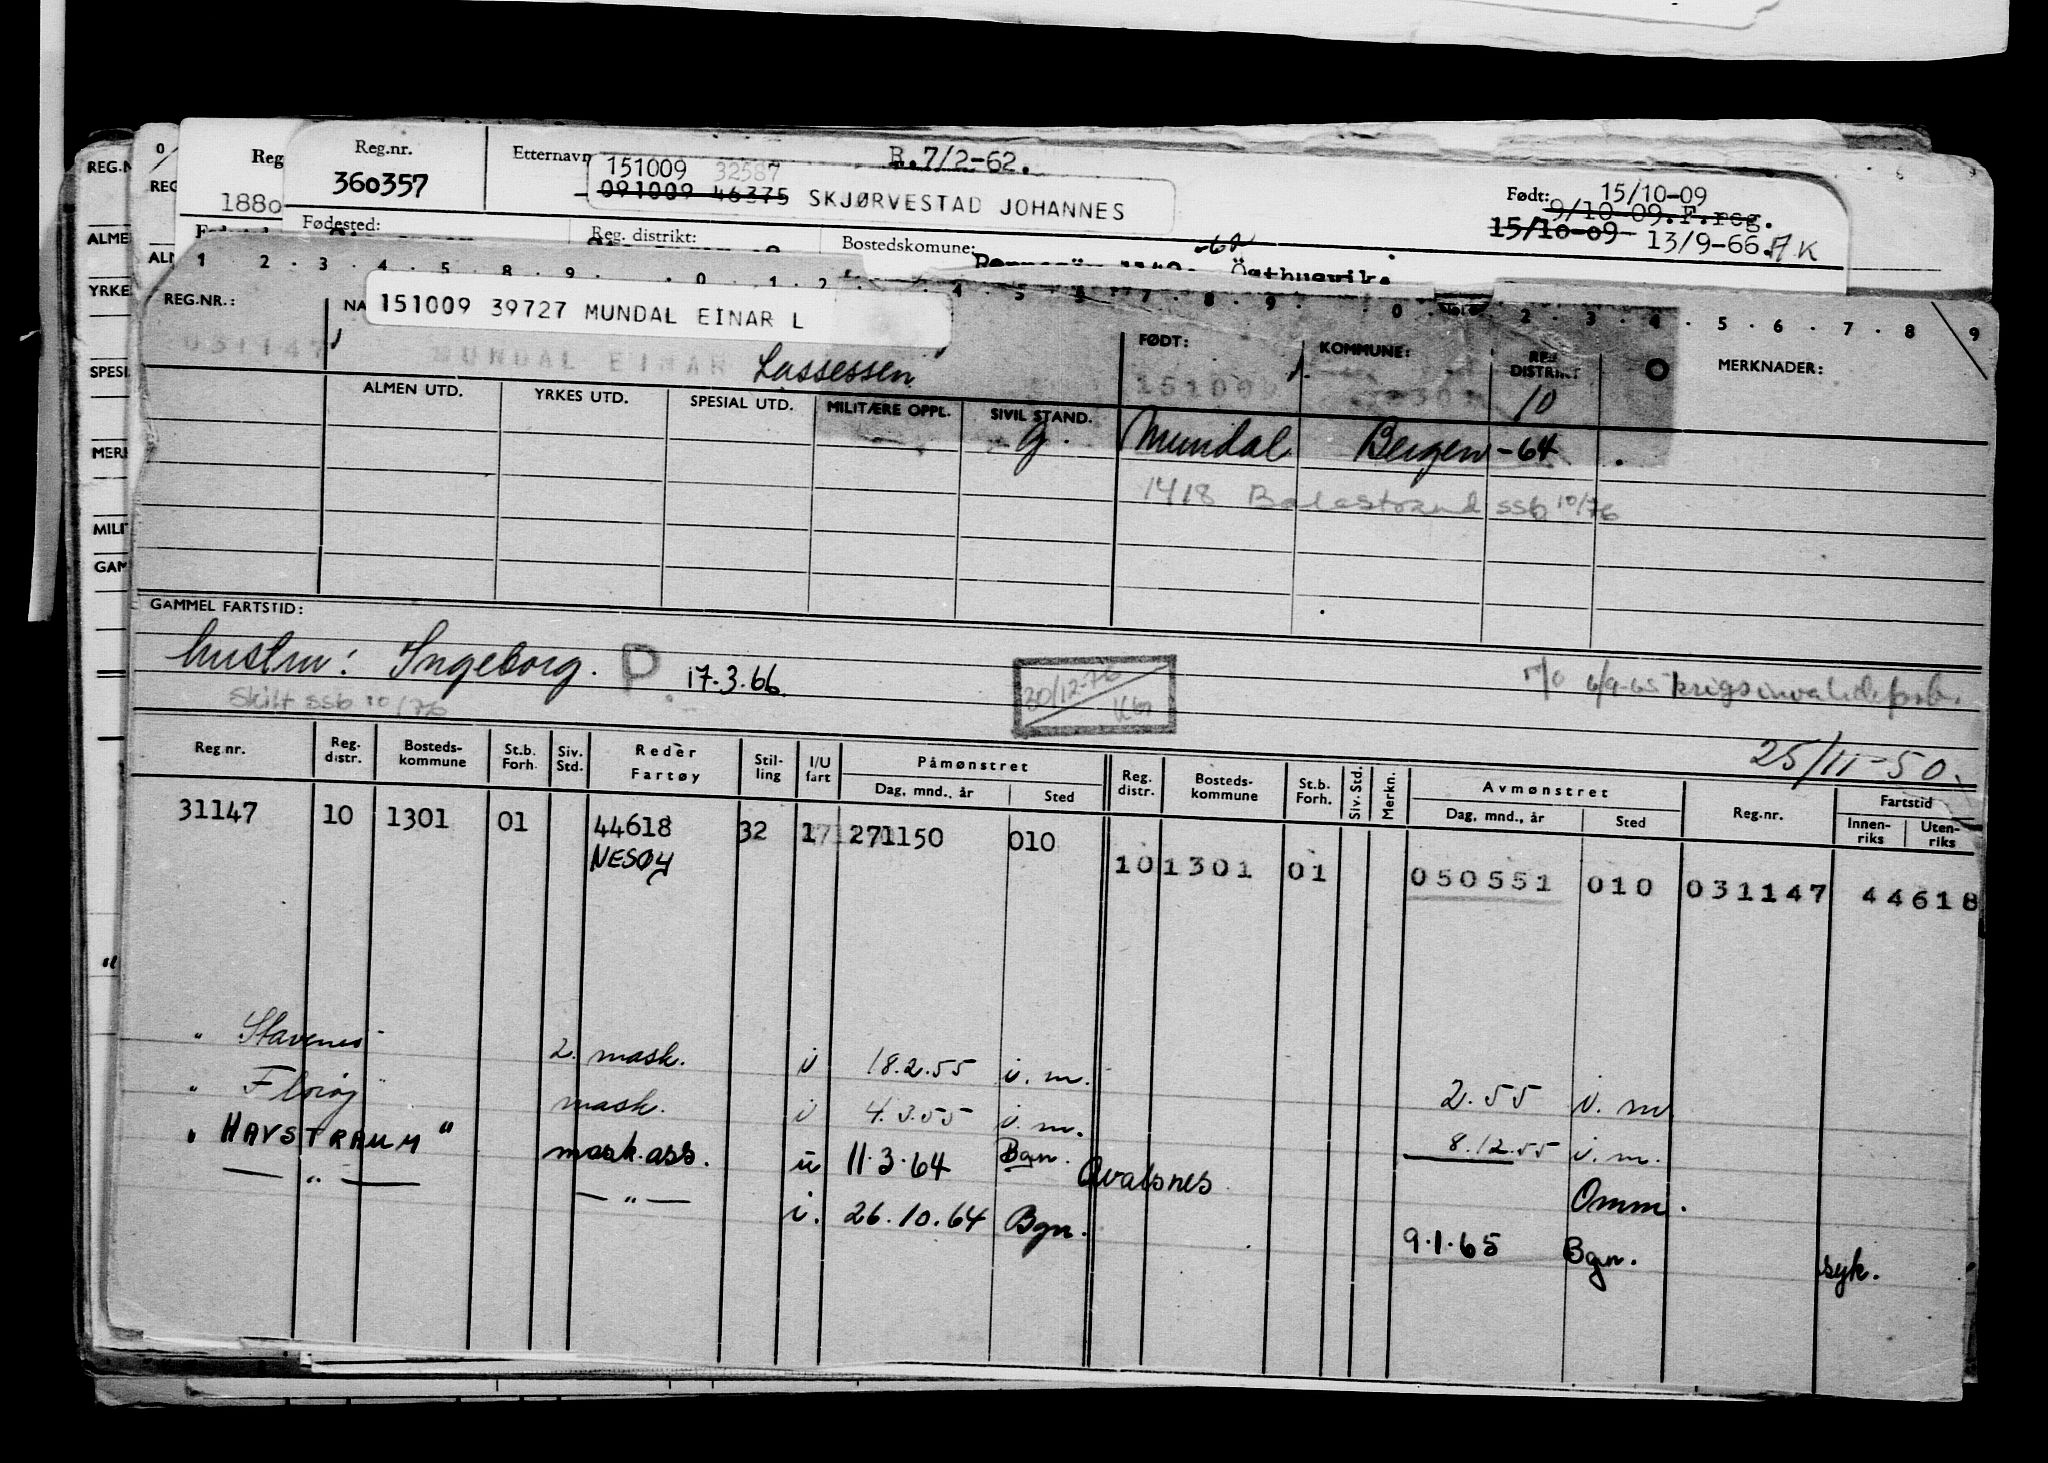 Reg.nr.
360357
Etternavn
151009 32587
091009 46375 SKJØRVESTAD JOHANNES
R.7/2-62.
Født: 15/10-09
9/10-09.F.reg.
15/10-09 13/9-66.AK
Reg
1880
Fødested:
Reg. distrikt:
Bostedskomune:
-62
REG.N
REG
ALME
ALM
YRKE
SPESI
MERK
MILIT
GAM
1 . 2 . 3 . 4 . 5 . 8 . 9 . 0 . 1 . 2 . 4 . 5 . 6 . 7 . 8 . 9 . 0 . 2 . 3 . 4 . 5 . 6 . 7 . 8 9
REG.NR.:
NA
151009 39727 MUNDAL EINAR L
FØDT:
KOMMUNE:
REG. DISTRIKT
MERKNADER:
031147
MUNDAL EINAR Lassessen
151009
10
ALMEN UTD.
YRKES UTD.
SPESIAL UTD.
MILITÆRE OPPL.
SIVIL STAND.
g.
Mundal
Bergen -64
1418 Balestrand ssb 10/76
GAMMEL FARTSTID:
hustru: Ingeborg. P. 17.3.66.
skilt ssb 10/76
30/12-76
6/9-65 krigsinvalideforb.
25/11-50.
Reg.nr.
Reg. distr.
Bosteds-kommune
St.b. Forh.
Siv. Std.
Reder
Fartøy
Stil-ling
I/U fart
Påmønstret
Dag, mnd., år
Sted
Reg. distr.
Bosteds-kommune
St.b. Forh.
Siv. Std.
Merkn.
Avmønstret
Dag, mnd., år
Sted
Reg.nr.
Fartstid
Innen-riks
Uten-riks
31147 10 1301 01 44618 32 1 271150 010
NESØY
10 1301 01 050551 010 031147 44618
" Stavenes 2. mask. i 18.2.55 i.m. 2.55 i.m
" Florøy mask. i 4.3.55 i.m. 8.12.55 i.m.
" HAVSTRAUM" mask.ass. u 11.3.64 Bgn. Avalsnes Omm.
— " — — " — i. 26.10.64 Bgn. 9.1.65 Bgn. syk.